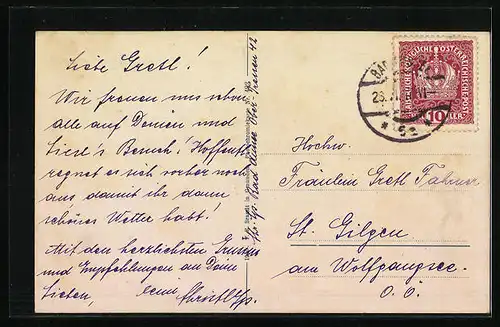 Liebe Gretl!
Wir freuen uns schon
alle auf Deinen und
Liesl's Besuch! Hoffentl.
regnet es sich vorher noch
aus damit ihr dann
schönes Wetter habt!
Mit den herzlichsten Grüssen
und Empfehlungen an Deine
Lieben,
Christl
KAISERLICHE KÖNIGLICHE ÖSTERREICHISCHE POST
10
BAD
Hochw.
Fräulein Gretl Fahrner
St. Gilgen
am Wolfgangsee.
O. Ö.